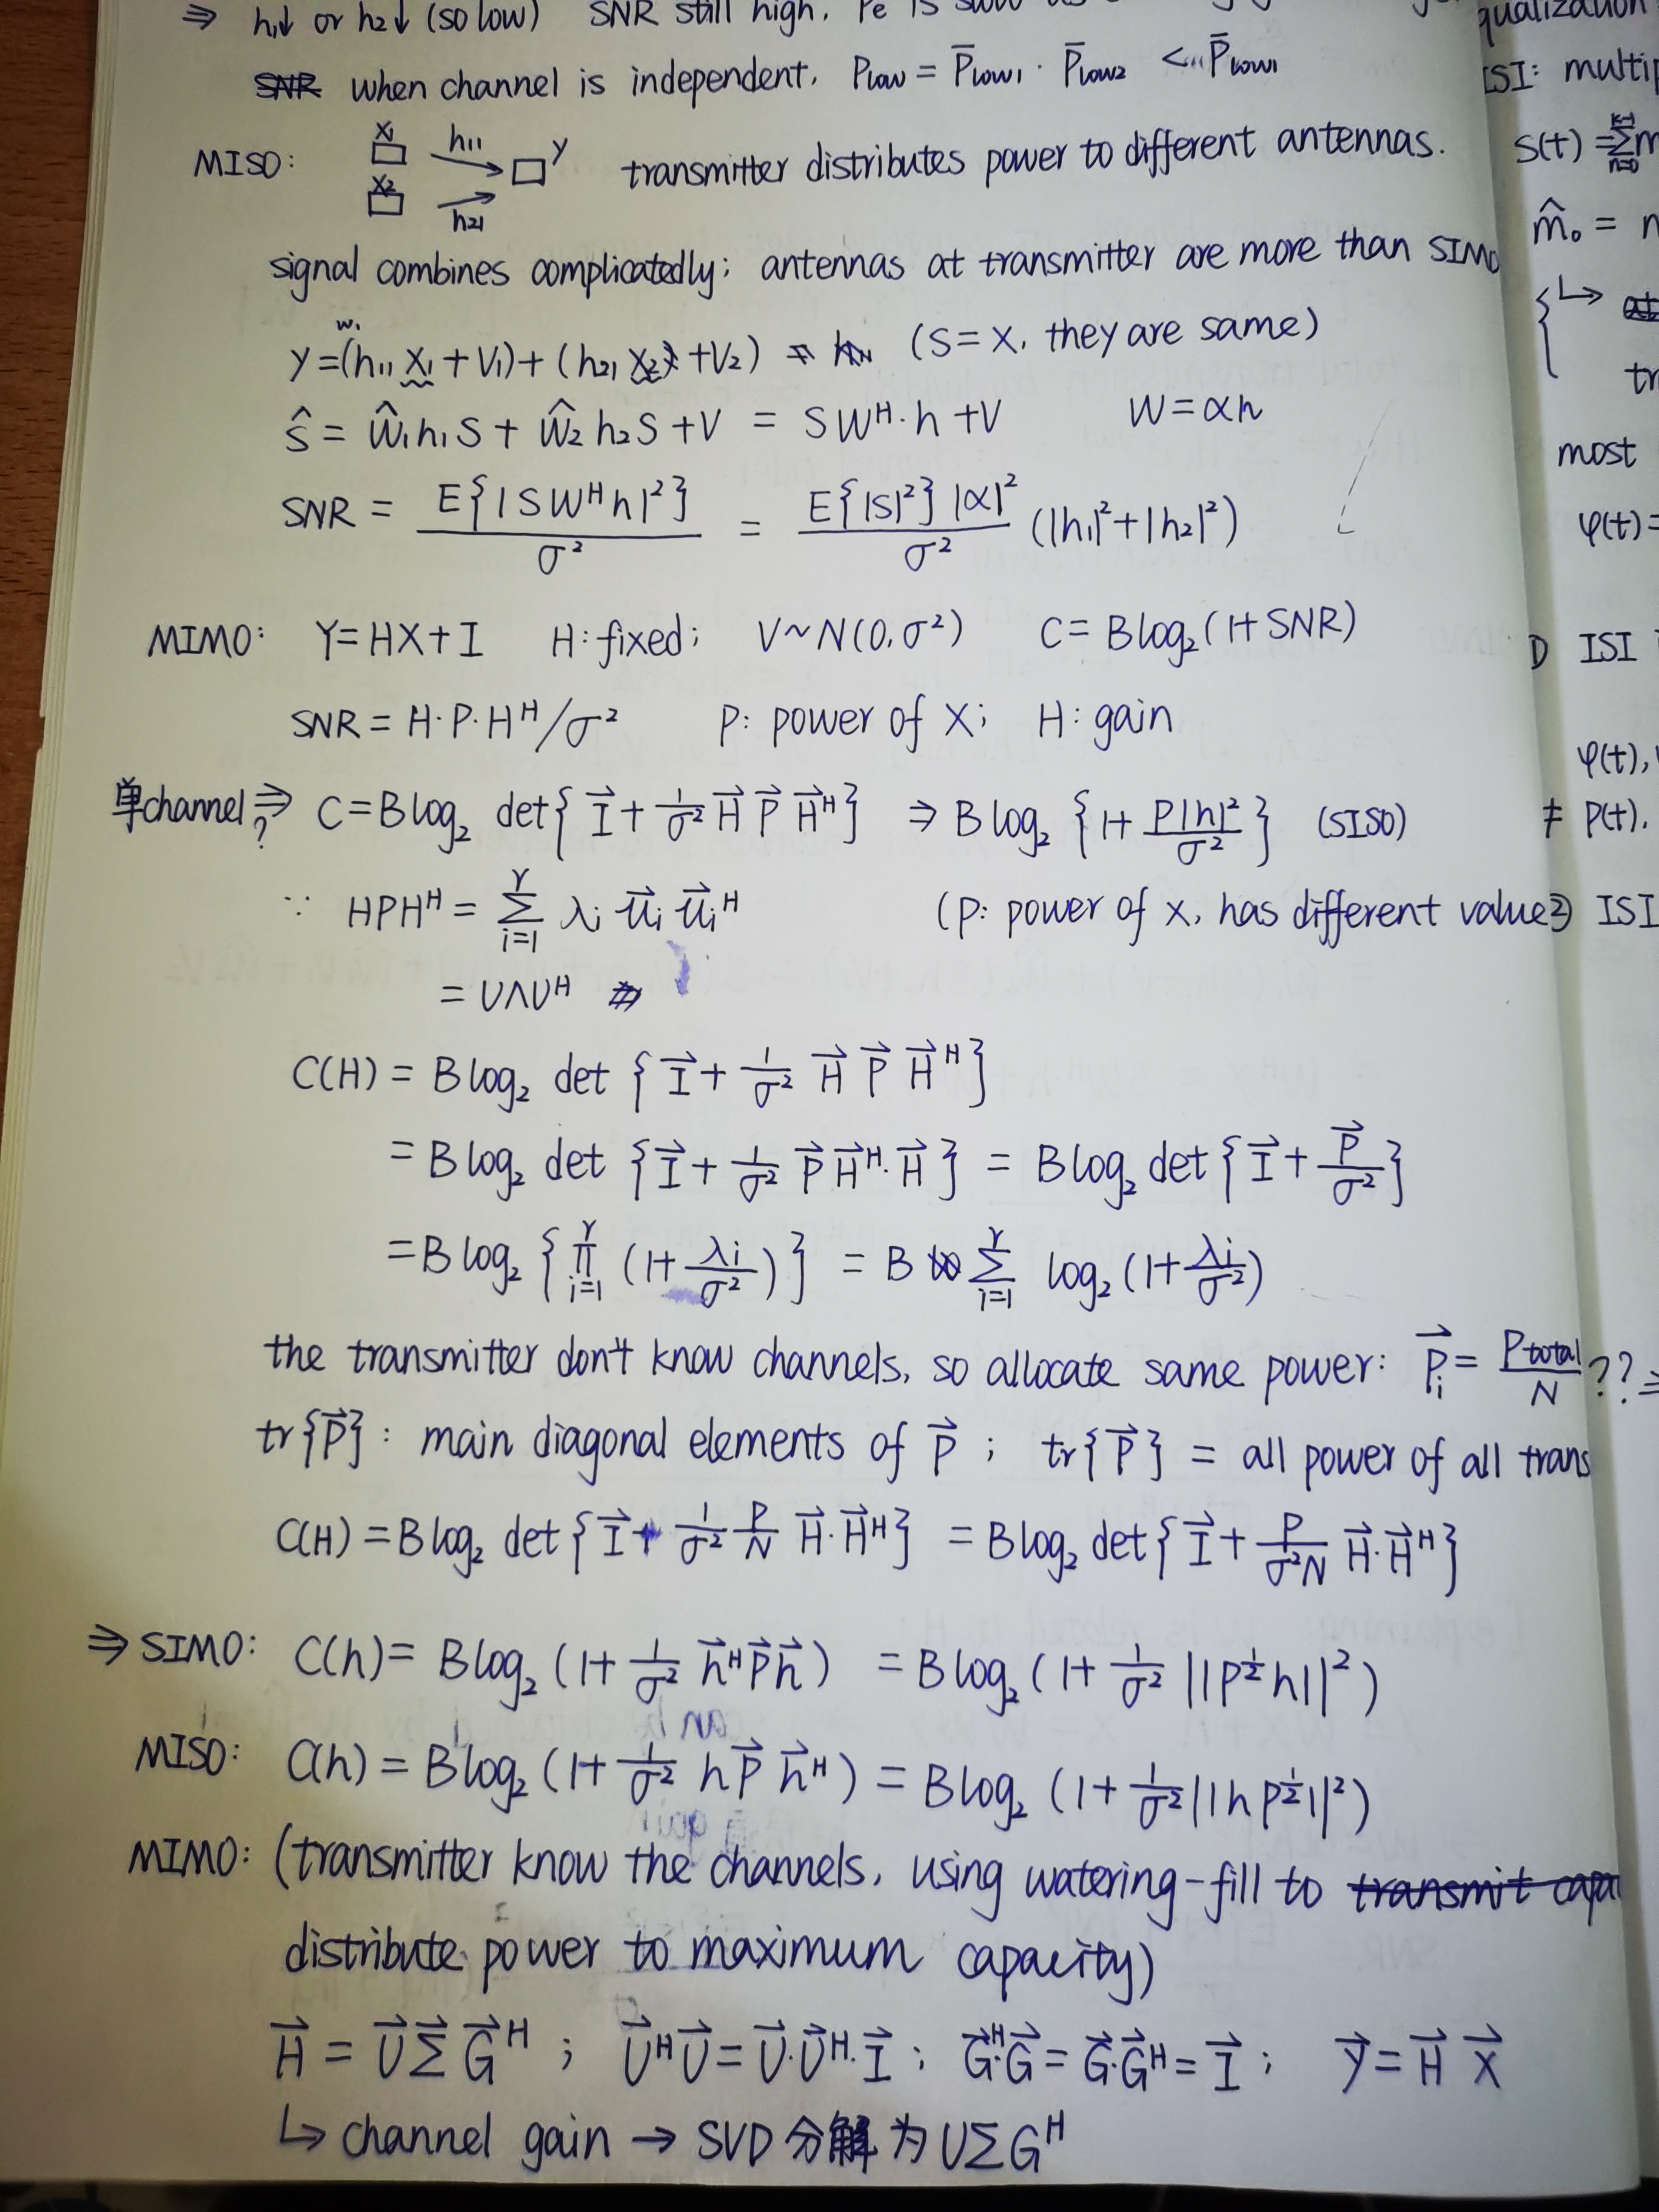 ⇒ h₁↓ or h₂↓ (so low) SNR still high, Pe is
when channel is independent. Plow = P̄low1 · P̄low2 <... P̄low1
MISO: X1 X2 h11 h21 y transmitter distributes power to different antennas.
signal combines complicatedly; antennas at transmitter are more than SIMO
y = (h11 x1 + V1) + (h21 x2 + V2) (S = X, they are same)
w1
ŝ = ŵ1h1S + ŵ2h2S + V = SW^H·h + V W = αh
SNR = E{|SW^H h|²}/σ² = E{|S|²}|α|²/σ² (|h1|²+|h2|²)
MIMO: Y=HX+I H: fixed; V~N(0,σ²) C = Blog₂(1+SNR)
SNR = H·P·H^H/σ² P: power of X; H: gain
单channel? ⇒ C=Blog₂ det{I⃗ + 1/σ² H⃗ P⃗ H⃗^H} ⇒ Blog₂{1+ P|h|²/σ²} (SISO)
∵ HPH^H = Σ_{i=1}^{r} λi u⃗i u⃗i^H (P: power of x, has different value)
= UΛU^H
C(H) = Blog₂ det{I⃗ + 1/σ² H⃗ P⃗ H⃗^H}
= Blog₂ det{I⃗ + 1/σ² P⃗ H⃗^H·H⃗} = Blog₂ det{I⃗ + P⃗/σ²}
= Blog₂{Π_{i=1}^{r} (1+λi/σ²)} = B Σ_{i=1}^{r} log₂(1+λi/σ²)
the transmitter don't know channels, so allocate same power: P⃗i = Ptotal/N ?? ⇒
tr{P⃗}: main diagonal elements of P⃗; tr{P⃗} = all power of all trans
C(H) = Blog₂ det{I⃗ + 1/σ² P/N H⃗·H⃗^H} = Blog₂ det{I⃗ + P/σ²N H⃗·H⃗^H}
⇒ SIMO: C(h) = Blog₂(1+ 1/σ² h⃗^H P⃗ h⃗) = Blog₂(1+ 1/σ² ||P^½ h||²)
MISO: C(h) = Blog₂(1+ 1/σ² h P⃗ h⃗^H) = Blog₂(1+ 1/σ² ||h P^½||²)
MIMO: (transmitter know the channels, using watering-fill to transmit capa
distribute power to maximum capacity)
H⃗ = U⃗ Σ⃗ G⃗^H; U⃗^H U⃗ = U⃗·U⃗^H·I⃗; G⃗^H·G⃗ = G⃗·G⃗^H = I⃗; y⃗ = H⃗ X⃗
↳ channel gain → SVD 分解为 UΣG^H
qualization
ISI: multip
S(t) = Σ_{n=0}^{k-1} m
m̂₀ =
↳ at
tr
most
φ(t)=
ISI
φ(t),
≠ p(t).
② ISI